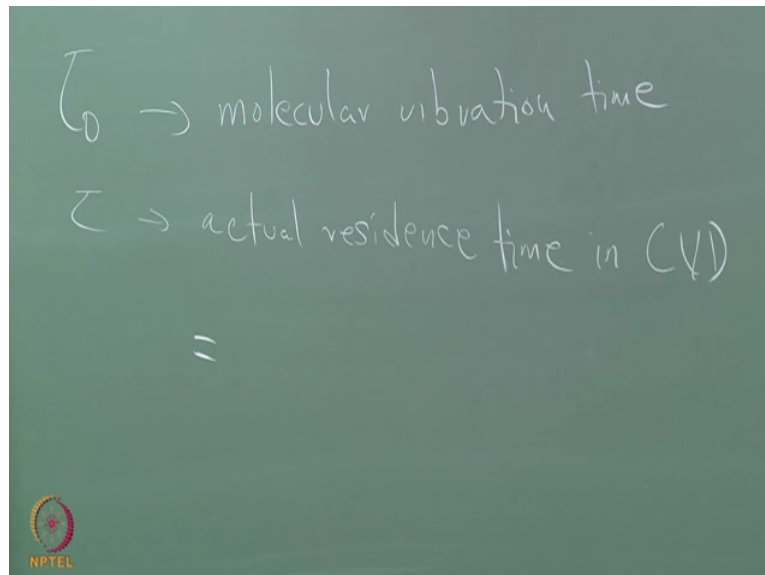 τ₀ → molecular vibration time
τ → actual residence time in CVD
=
NPTEL